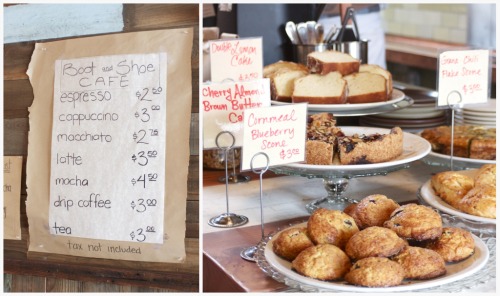 Boot and Shoe
CAFÉ
espresso $2.50
cappuccino $3.00
macchiato $2.75
latte $3.50
mocha $4.50
drip coffee $3.00
tea $3.00
tax not included
Double Lemon
Cake
$3.50
Cherry Almond
Brown Butter
Cornmeal
Blueberry
Scone
$3.00
$3.50